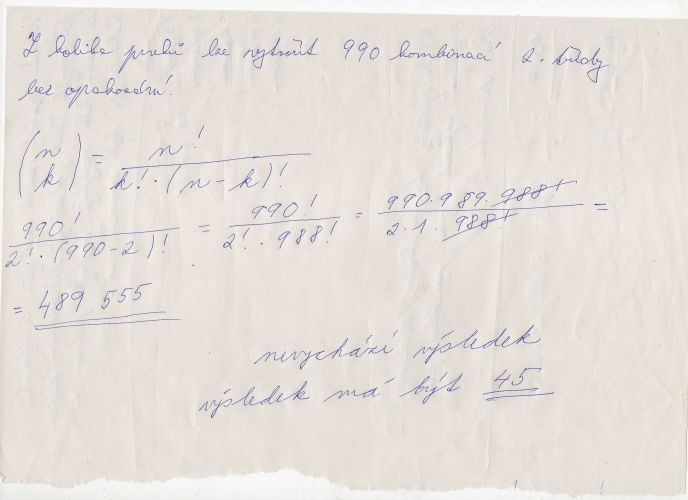 Z kolika prvků lze vytvořit 990 kombinací 2. třídy
bez opakování.
(n k) = n! / k! · (n - k)!
990! / 2! · (990-2)! = 990! / 2! · 988! = 990 · 989 · 988! / 2 · 1 · 988! =
= 489 555
nevychází výsledek
výsledek má být 45